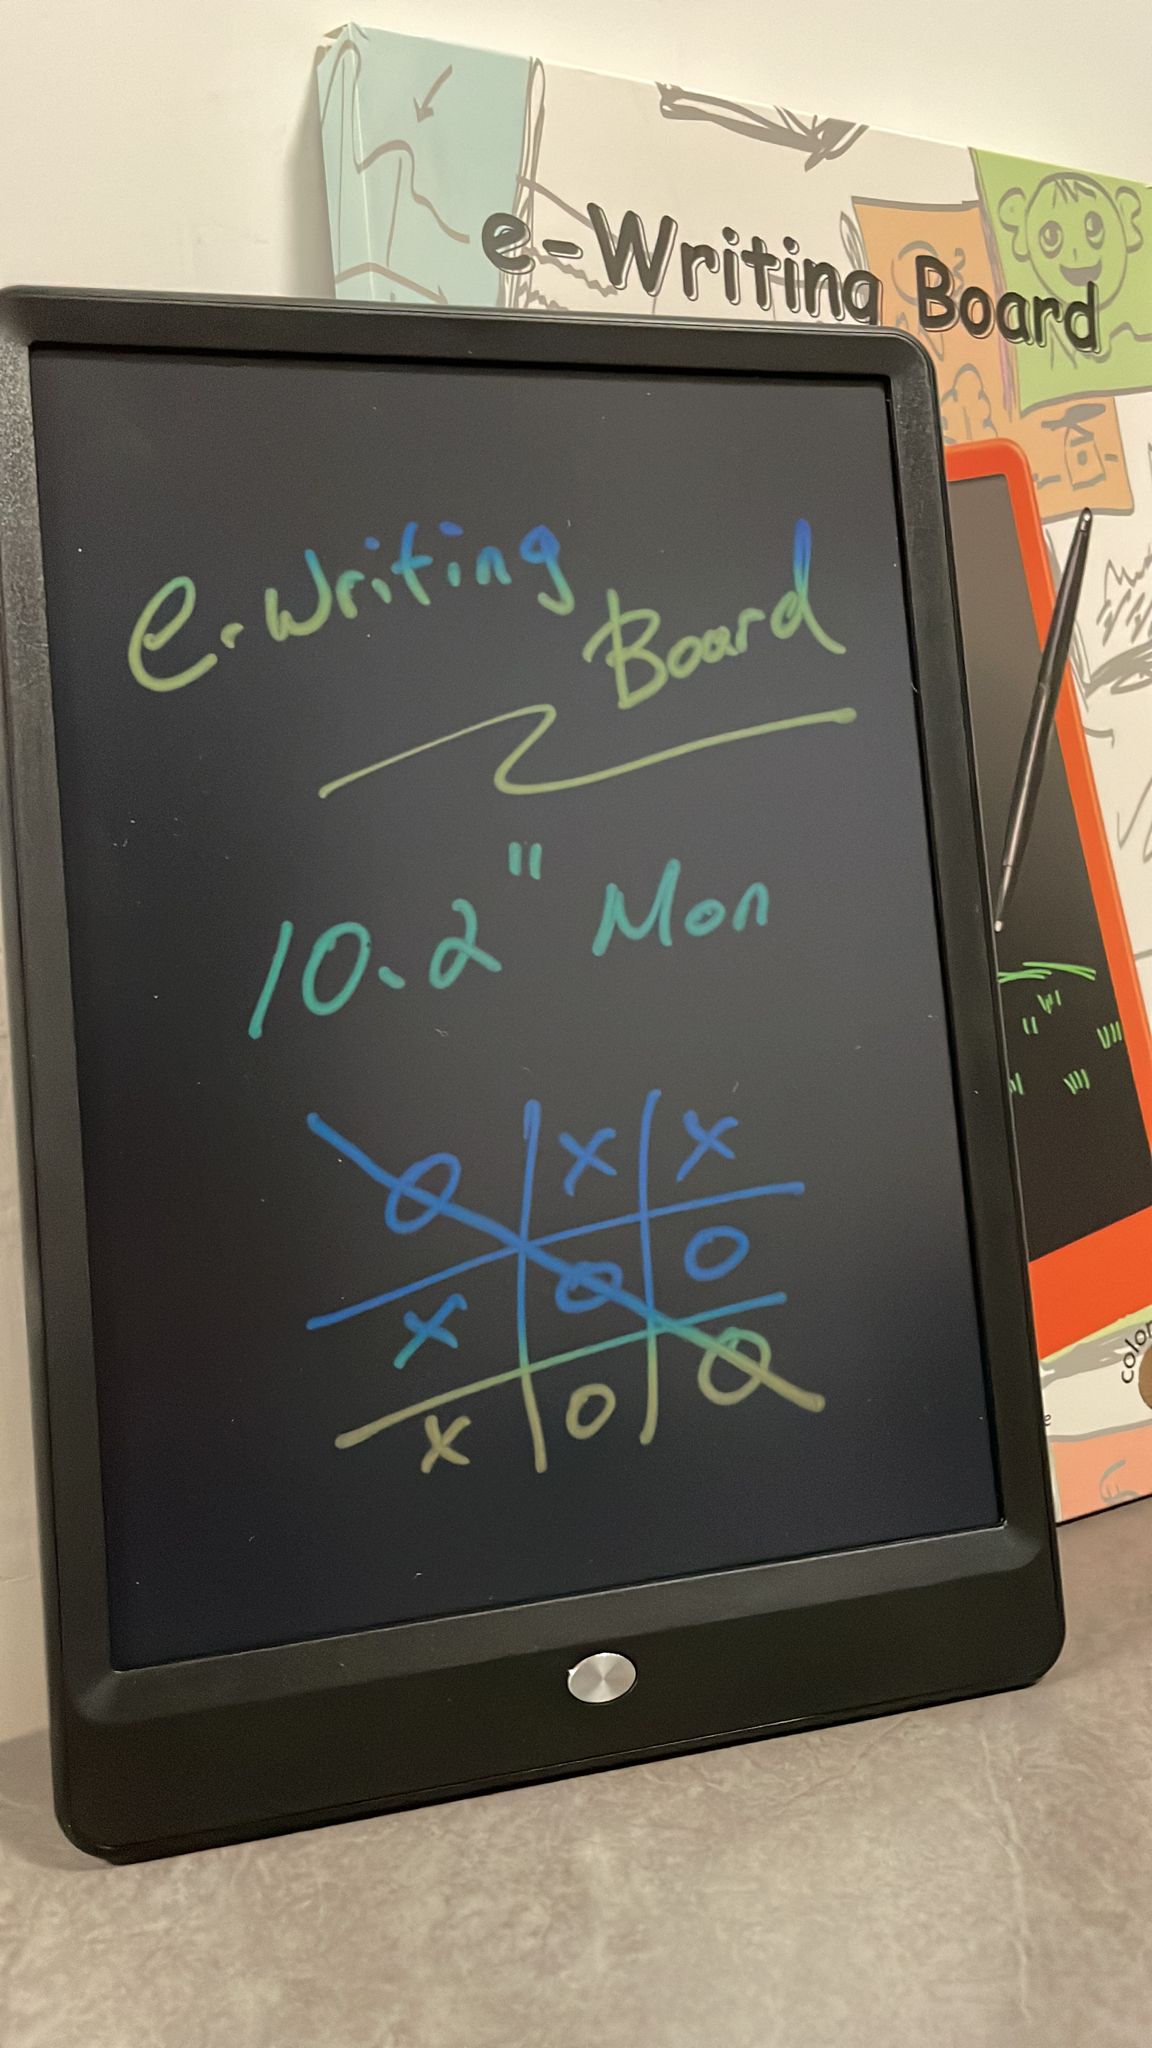 e-Writing Board
e-writing
Board
10.2" Mon
O X X
X O O
X O O
color